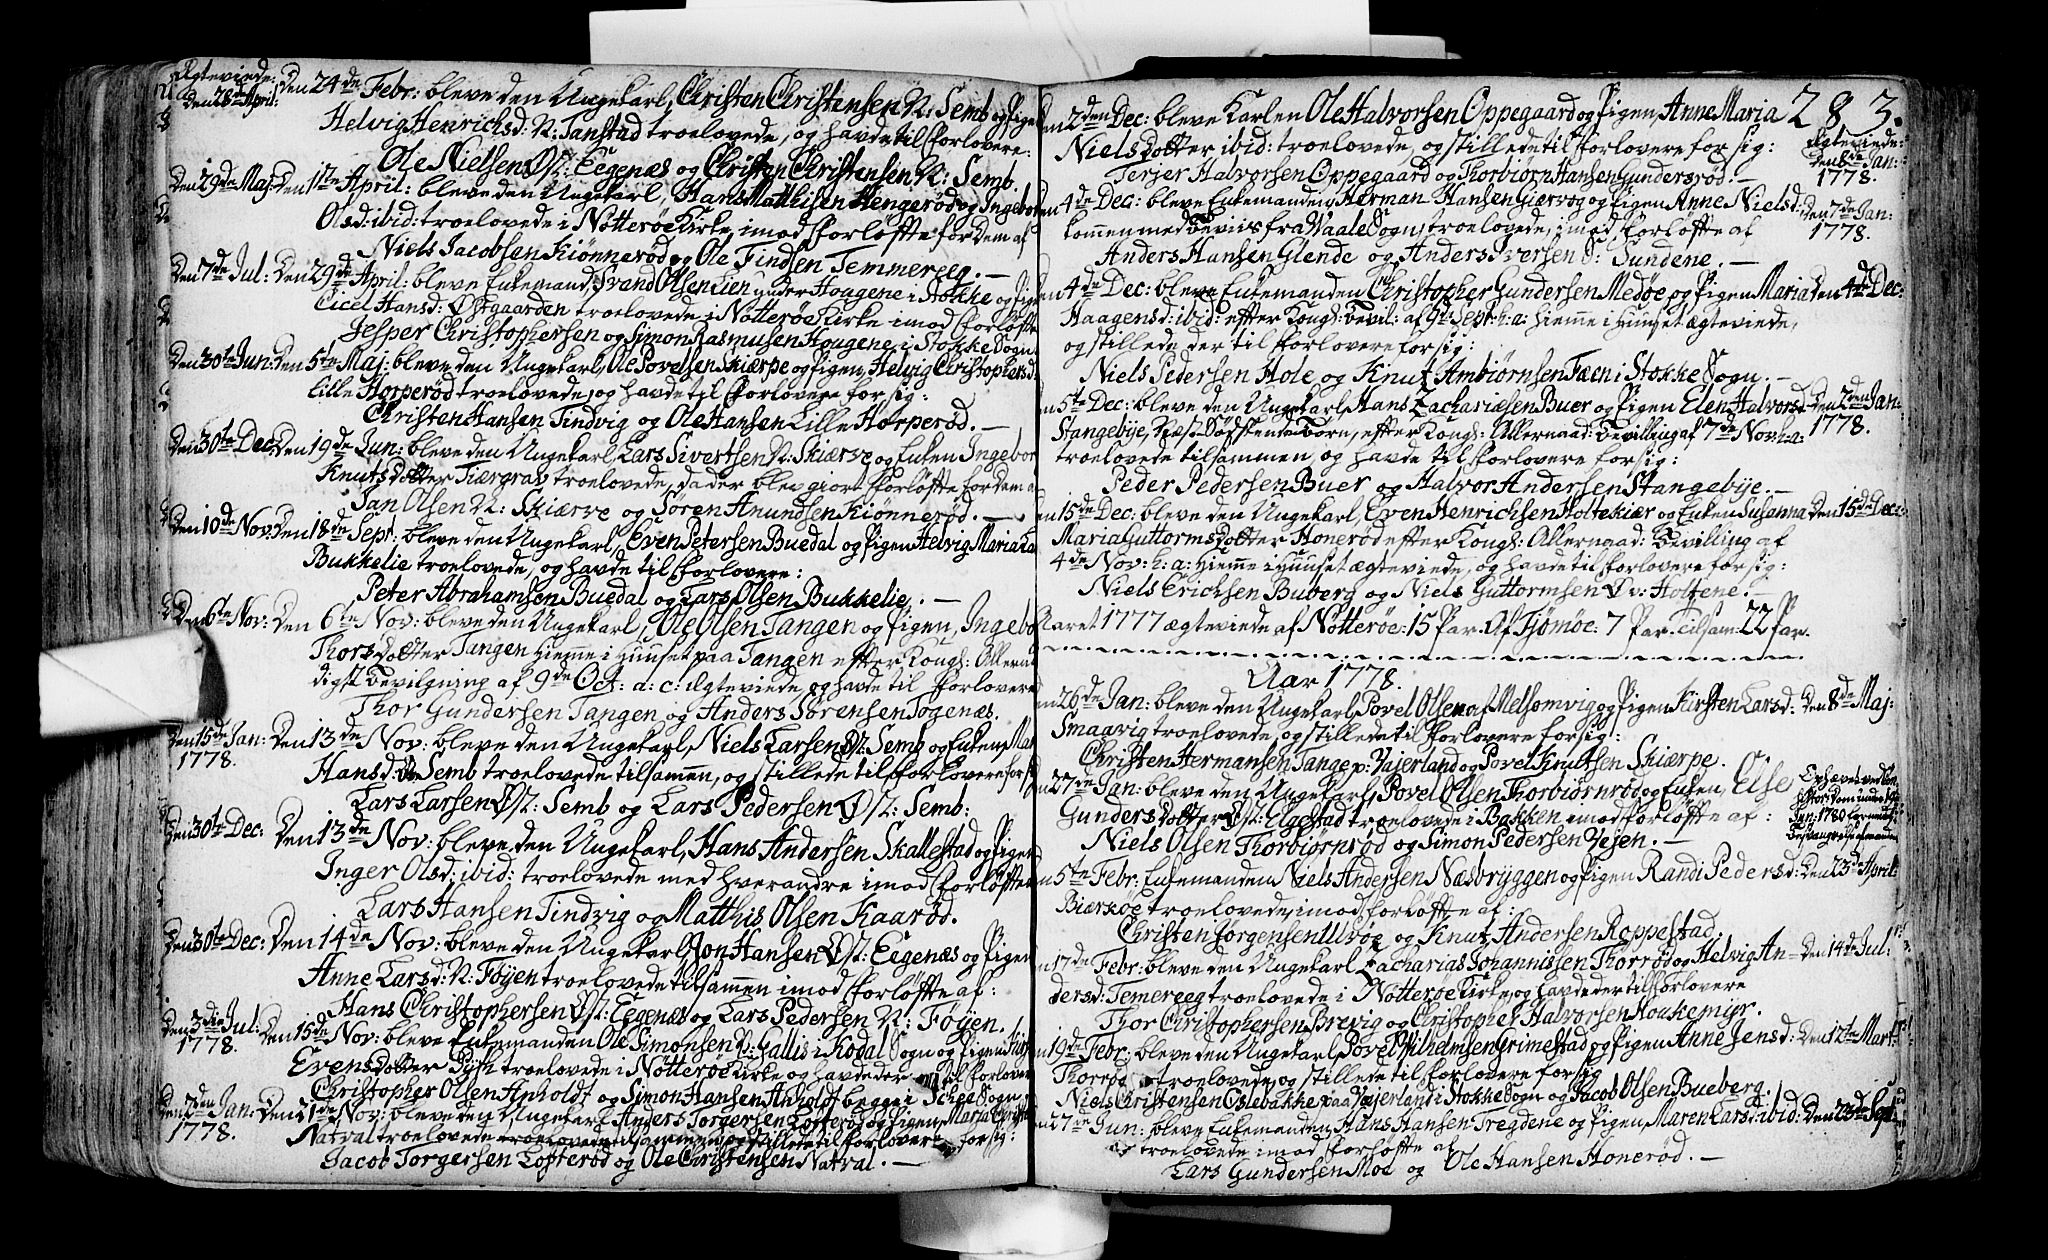 Ægteviede:
Den 28de April:
Den 24de Febr: bleve den Ungekarl, Christen Christensen N: Semb og Pigen
Helvig Henrichsd: N: Tanstad troelovede, og havde til Forlovere:
Ole Nielsen Øst: Eegenæs og Christen Christensen N: Semb.
Den 29de Maj: Den 11te April: bleve den Ungekarl, Hans Matthisen Hengerød og Ingebor
Olsd: ibid: troelovede i Nötteröe Kirke, imod Forløffte for Dem af
Niels Jacobsen Kiönneröd og Ole Findsen Temmereeg. —
Den 7de Jul: Den 29de April: bleve Enkemand, Svend Olsen Lien under Hougene i Stokke og Pigen
Cicel Hansd: Østgaarden troelovede i Nötteröe Kirke imod Forløffte
Jesper Christophersen og Simon Rasmusen Hougene i Stokke Sogn
Den 30te Jun: Den 5te Maj: bleve den Ungekarl, Ole Povelsen Skiærpe og Pigen, Helvig Christophersd:
Lille Horperöd troelovede, og havde til Forlovere for sig:
Christen Hansen Tindvig og Ole Hansen Lille Horperöd. —
Den 30te Dec: Den 19de Jun: bleve den Ungekarl, Lars Sivertsen N: Skiærve og Enken Ingebor
Knuts Dotter Tiærgras troelovede, da der blev giort Forløffte for Dem a
Jan Olsen N: Skiærve og Sören Anundsen Kionneröd. —
Den 10de Nov: Den 18de Sept: bleve den Ungekarl, Even Petersen Buedal og Pigen Helvig Maria La
Bukkelie troelovede, og havde til Forlovere:
Peter Abrahamsen Buedal og Lars Olsen Bukkelie. —
Den 6te Nov: Den 6te Nov: bleve den Ungekarl, Ole Olsen Tangen og Pigen, Ingebo
Thors Dotter Tangen hiemme i Huuset paa Tangen effter Kongl: Allerna
digst Bevilgning af 9de Oct: a: c: Ægteviede, og havde til Forlovere
Thor Gundersen Tangen og Anders Sörensen Togenæs.
Den 15de Jan: 1778. Den 13de Nov: bleve den Ungekarl, Niels Larsen Øst: Semb og Enken, Mar
Hansd: Semb troelovede tilsamen, og stillede til Forlovere for sig
Lars Larsen Øst: Semb og Lars Pedersen Øst: Semb:
Den 30te Dec: Den 13de Nov: bleve den Ungekarl, Hans Andersen Skallestad og Pigen
Inger Olsd: ibid: troelovede med hverandre imod Forløffte
Lars Hansen Tindvig og Matthis Olsen Kaaröd.
Den 30te Dec: Den 14de Nov: bleve den Ungekarl, Jon Hansen Øst: Eegenæs og Pigen
Anne Larsd: N: Föyen troelovede tilsamen imod Forløffte af:
Hans Christophersen Øst: Eegenæs og Lars Pedersen N: Föyen.
Den 3die Jul: 1778. Den 15de Nov: bleve Enkemanden Ole Simonsen N: Gallis i Kodal Sogn og Pigen
Evens Dotter troelovede i Nötteröe Kirke og havde der til Forlovere
Christopher Olsen Anholdt og Simon Hansen Anholdt begge i Schee Sogn
Den 2den Jan: 1778. Den Nov: bleve den Ungekarl Anders Torgersen Lofteröd og Pigen, Maria Christ
Natval troelovede tilsammen og stillede til Forlovere for sig:
Jacob Torgersen Lofteröd og Ole Christensen Natval. —
283.
2den Dec: bleve Karlen Ole Halvorsen Oppegaard og Pigen, Anne Maria
Niels Dotter ibid: troelovede, og stillede til Forlovere for sig:
Ægteviede: Den 8de Jan: 1778.
Terjer Halvorsen Oppegaard og Thorbiörn Hansen Gundersröd. —
4de Dec: bleve Enkemanden, Herman Hansen Giervog og Pigen Anne Nielsd: Den 7de Jan: 1778.
kommen med Beviis fra Vaale Sogn, troelovede, imod Forløffte af
Anders Hansen Glende og Anders Iversen S: Sundene. —
4de Dec: bleve Enkemanden Christopher Gundersen Medöe og Pigen Maria Den 4de Dec:
Haagensd: ibid: effter Kongl: Bevil: af Sept: h: a: hiemme i Huuset ægteviede,
og stillede der til Forlovere for sig:
Niels Pedersen Hole og Knut Ambiörnsen Fæen i Stokke Sogn. —
5te Dec: bleve den Ungekarl, Hans Zachariæsen Buer og Pigen Elen Halvorsd: Den 2den Jan: 1778.
Stangebije, Næst-Sødskende-Børn, effter Kongl: Allernaad: Bevilling af 7de Nov: h: a:
troelovede tilsammen, og havde til Forlovere for sig:
Peder Pedersen Buer og Halvor Andersen Stangebije. —
15de Dec: bleve den Ungekarl, Even Henrichsen Holtekiær og Enken Susanna Den 15de Dec:
Maria Guttorms Dotter Honeröd effter Kongl: Allernaad: Bevilling af
4de Nov: h: a: hiemme i Huuset ægteviede, og havde til Forlovere for sig:
Niels Erichsen Buberg og Niels Guttormsen Øv: Holtene. —
Aaret 1777 ægteviede af Nötteröe: 15 Par. Af Tjömöe: 7 Par. tilsam: 22 Par.
Aar 1778.
26de Jan: bleve den Ungekarl, Povel Olsen af Melsomvig og Pigen Kirsten Larsd: Den 8de Maj:
Smaavig troelovede, og stillede til Forlovere for sig:
Christen Hermansen Tange p: Vajerland og Povel Knutsen Skiærpe.
27de Jan: bleve den Ungekarl, Povel Olsen Thorbiörnröd og Enken, Else
Gunders Dotter Øst: Elgestad troelovede i Bakken imod Forløffte af:
Niels Olsen Thorbiörnröd og Simon Pedersen Vejen. —
5te Febr: Enkemanden Niels Andersen Næsbryggen og Pigen Randi Pedersd: Den 23de April:
Biærköe troelovede, imod Forløffte af:
Christen Jörgensen Ulvöe og Knut Andersen Roppestad.
17de Febr: bleve den Ungekarl Zacharias Johannissen Thorröd og Helvig An- Den 14de Jul:
dersd: Temereeg troelovede i Nötteröe Kirke, og havde der til Forlovere
Thor Christophersen Brevig og Christopher Halvorsen Hoakemyr.
19de Febr: bleve den Ungekarl Povel Vilhelmsen Grimestad og Pigen Anne Jensd: Den 12te Mart:
Thorröe troelovede, og stillede til Forlovere for sig
Niels Christensen Oslebakke paa Vajerland i Stokke Sogn og Jacob Olsen Bueberg.
27de Jun: bleve Enkemanden, Hans Hansen Tregdene og Pigen, Maren Larsd: ibid: Den 23de Sept:
troelovede imod Forløffte af
Lars Gundersen Moe og Ole Hansen Honeröd. —